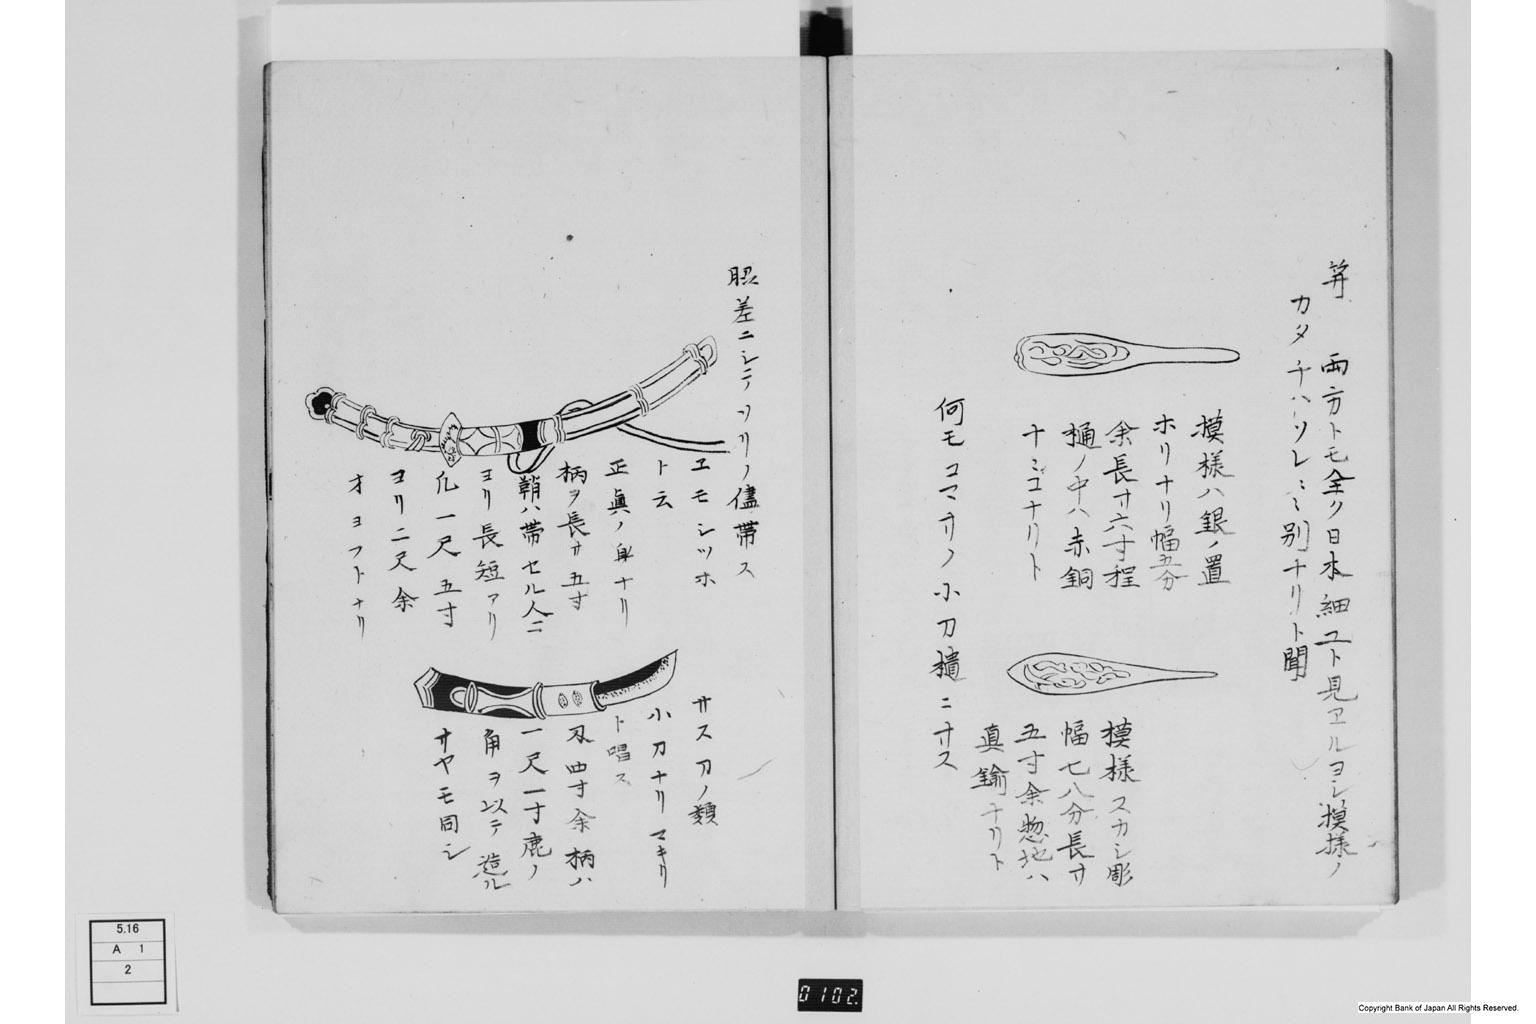 笄 両方トモ全ク日本細工ト見ヱルヨシ模様ノ
カタチハソレミミ別ナリト聞
模様ハ銀ノ置
ホリナリ幅五分
余長サ六寸程
樋ノ中ハ赤銅
ナミコナリト
模様スカシ彫
幅七八分長サ
五寸余惣地ハ
真鍮ナリト
何モコマサリノ小刀樻ニサス
脇差ニシテソリノ儘帯ス
ヱモシツホ
ト云
正眞ノ身ナリ
柄ヲ長サ五寸
鞘ハ帯セル人ニ
ヨリ長短アリ
凢一尺五寸
ヨリ二尺余
オヨフトナリ
サス刀ノ類
小刀ナリマキリ
ト唱ス
刄四寸余柄ハ
一尺一寸鹿ノ
角ヲ以テ造ル
サヤモ同シ
5.16
A 1
2
0102
Copyright Bank of Japan All Rights Reserved.